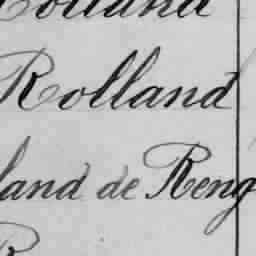 Rolland
Rolland
land de Reng